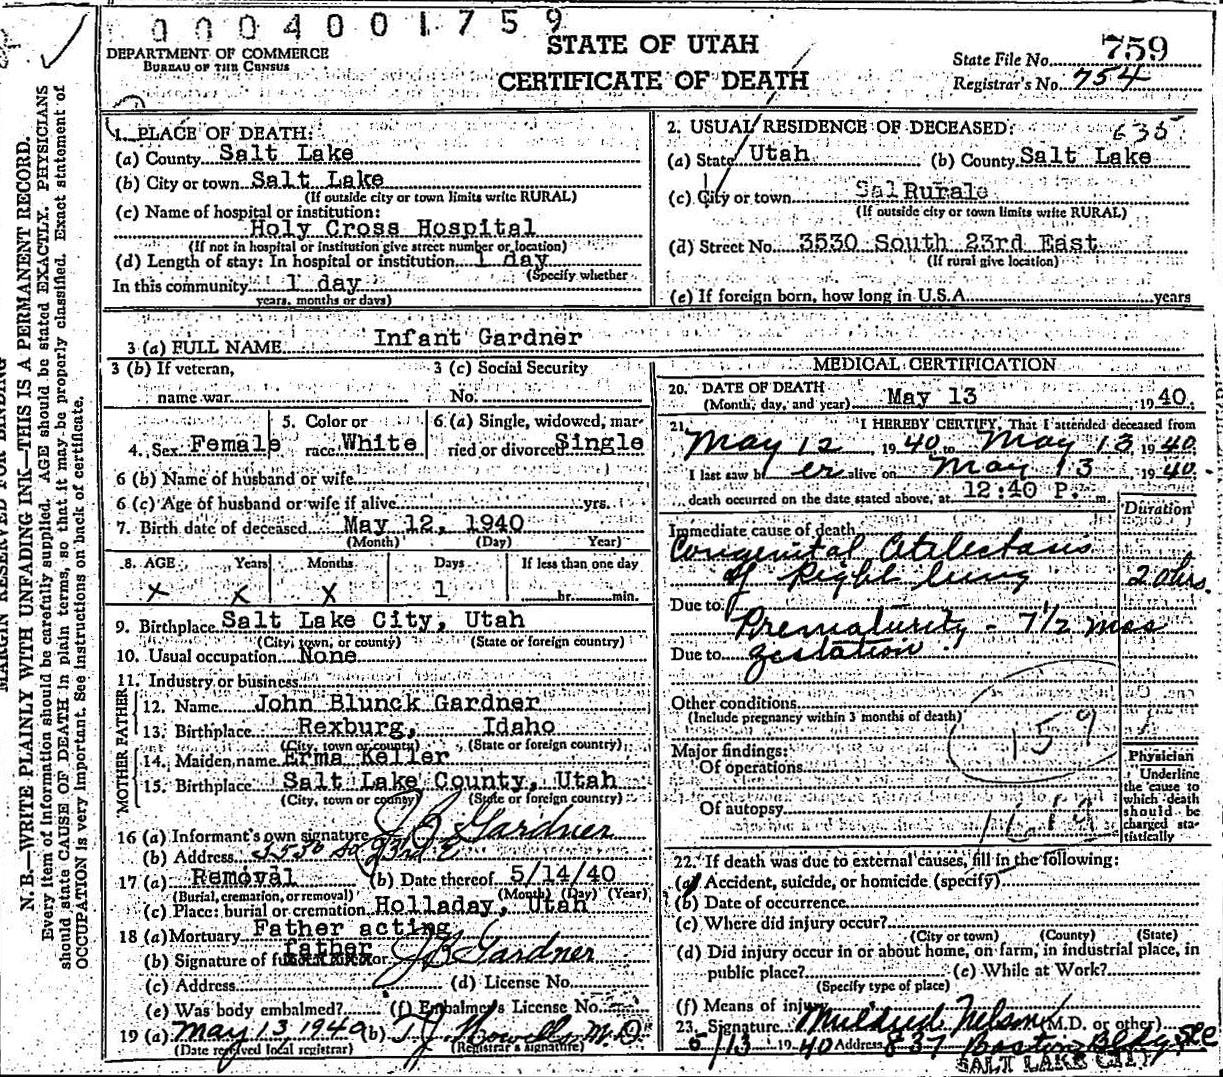 0004001759
DEPARTMENT OF COMMERCE
BUREAU OF THE CENSUS
STATE OF UTAH
CERTIFICATE OF DEATH
State File No. 759
Registrar's No. 754
MARGIN RESERVED FOR BINDING
N. B.—WRITE PLAINLY WITH UNFADING INK—THIS IS A PERMANENT RECORD.
Every item of information should be carefully supplied. AGE should be stated EXACTLY. PHYSICIANS
should state CAUSE OF DEATH in plain terms, so that it may be properly classified. Exact statement of
OCCUPATION is very important. See instructions on back of certificate.
1. PLACE OF DEATH:
(a) County Salt Lake
(b) City or town Salt Lake
(If outside city or town limits write RURAL)
(c) Name of hospital or institution:
Holy Cross Hospital
(If not in hospital or institution give street number or location)
(d) Length of stay: In hospital or institution 1 day
(Specify whether
In this community 1 day
years, months or days)
2. USUAL RESIDENCE OF DECEASED: 635
(a) State Utah (b) County Salt Lake
(c) City or town Sal Rural
(If outside city or town limits write RURAL)
(d) Street No. 3530 South 23rd East
(If rural give location)
(e) If foreign born, how long in U.S.A. years
3 (a) FULL NAME Infant Gardner
3 (b) If veteran,
name war
3 (c) Social Security
No.
4. Sex Female
5. Color or
race White
6 (a) Single, widowed, mar-
ried or divorced Single
6 (b) Name of husband or wife
6 (c) Age of husband or wife if alive yrs.
7. Birth date of deceased May 12, 1940
(Month) (Day) Year)
8. AGE Years Months Days If less than one day
x x x 1 hr. min.
9. Birthplace Salt Lake City, Utah
(City, town, or county) (State or foreign country)
10. Usual occupation None
11. Industry or business
FATHER
12. Name John Blunck Gardner
13. Birthplace Rexburg, Idaho
(City, town or county) (State or foreign country)
MOTHER
14. Maiden name Erma Keller
15. Birthplace Salt Lake County, Utah
(City, town or county) (State or foreign country)
16 (a) Informant's own signature J B Gardner
(b) Address 3530 So 23rd E
17 (a) Removal (b) Date thereof 5/14/40
(Burial, cremation, or removal) (Month) (Day) (Year)
(c) Place: burial or cremation Holladay, Utah
18 (a) Mortuary Father acting
father
(b) Signature of funeral director J B Gardner
(c) Address (d) License No.
(e) Was body embalmed? (f) Embalmer's License No.
19 (a) May 13 1940 (b) T J Howells M.D.
(Date received local registrar) (Registrar's signature)
MEDICAL CERTIFICATION
20. DATE OF DEATH
(Month, day, and year) May 13 1940.
21. I HEREBY CERTIFY, That I attended deceased from
May 12 1940 to May 13 1940
I last saw her alive on May 13 1940
death occurred on the date stated above, at 12:40 P. m.
Duration
Immediate cause of death
Congenital Atelectasis
of Right lung 20 hrs.
Due to
Prematurity - 7 1/2 mos
Due to gestation
Other conditions
(Include pregnancy within 3 months of death)
159
Major findings:
Of operations
Of autopsy
1619
Physician
Underline
the cause to
which death
should be
charged sta-
tistically
22. If death was due to external causes, fill in the following:
(a) Accident, suicide, or homicide (specify)
(b) Date of occurrence
(c) Where did injury occur?
(City or town) (County) (State)
(d) Did injury occur in or about home, on farm, in industrial place, in
public place? (e) While at Work?
(Specify type of place)
(f) Means of injury
23. Signature Mildred Nelson (M.D. or other)
5/13 1940 Address 837 Boston Bldg SLC
SALT LAKE CITY